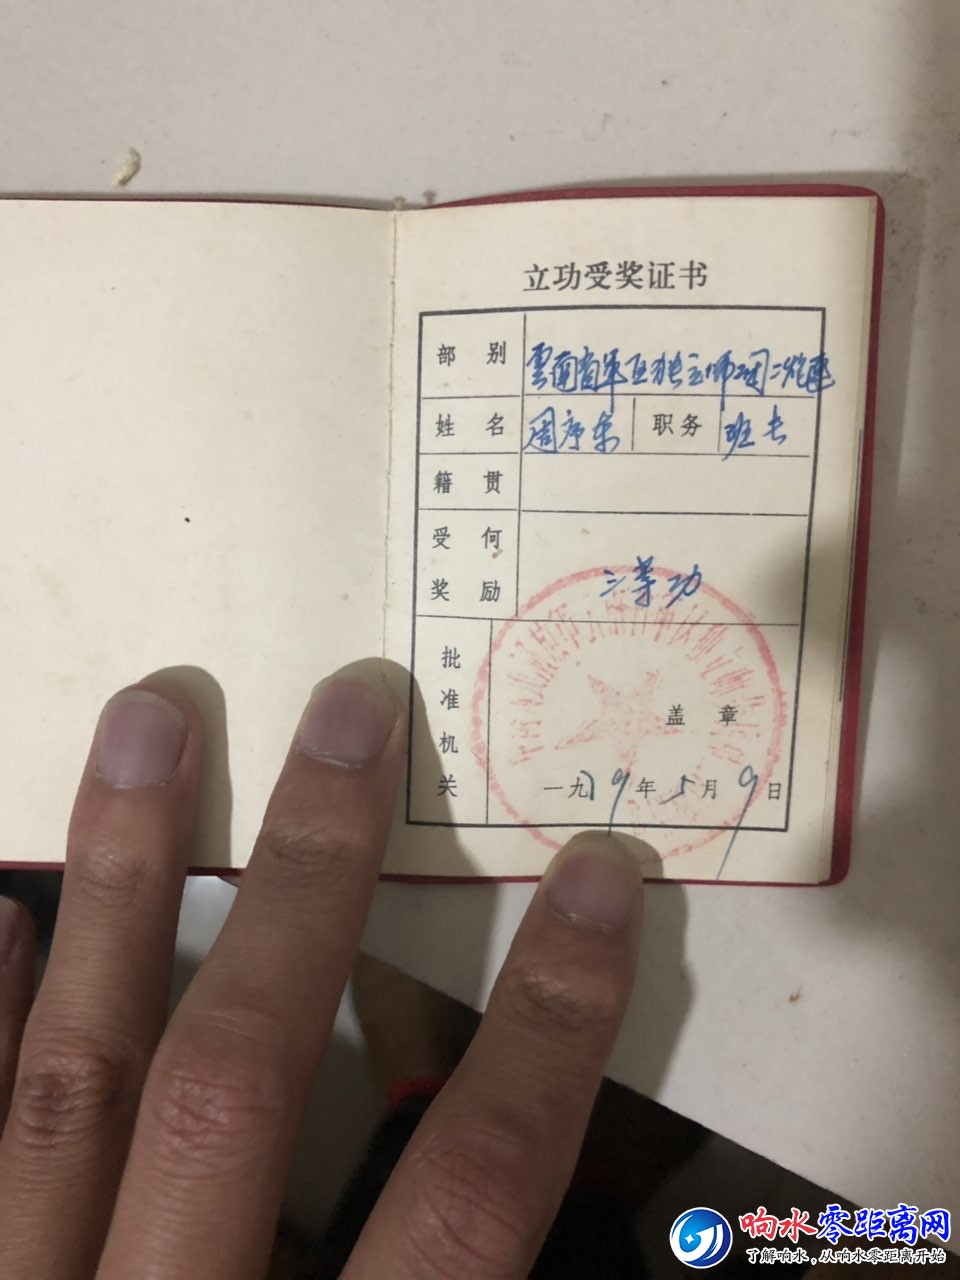 立功受奖证书
部别 雲南省军区独立师
姓名 周序东 职务 班长
籍贯
受何奖励 三等功
批准机关
盖章
一九79年5月9日
响水零距离网
了解响水，从响水零距离开始